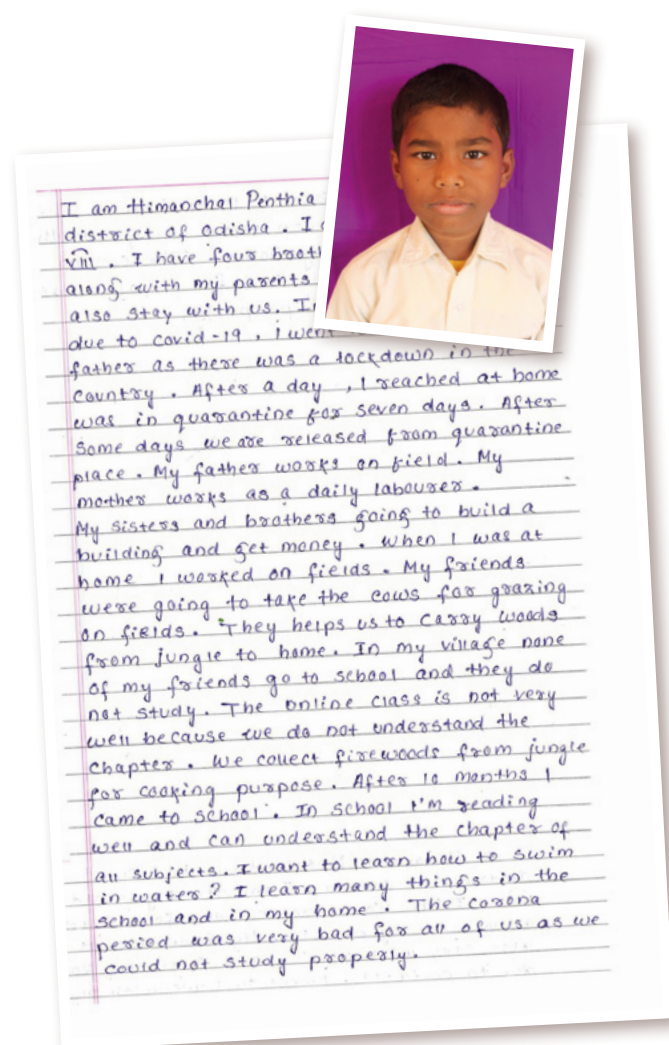 I am Himanchal Penthia
district of Odisha. I
viii. I have four
along with my parents
also stay with us.
due to covid-19, I went
father as there was a lockdown in the
country. After a day, I reached at home
was in quarantine for seven days. After
some days we are released from quarantine
place. My father works on field. My
mother works as a daily labourer.
My sisters and brothers going to build a
building and get money. When I was at
home I worked on fields. My friends
were going to take the cows for grazing
on fields. They helps us to carry woods
from jungle to home. In my village none
of my friends go to school and they do
not study. The online class is not very
well because we do not understand the
chapter. We collect firewoods from jungle
for cooking purpose. After 10 months I
came to school. In school I'm reading
well and can understand the chapter of
all subjects. I want to learn how to swim
in water? I learn many things in the
school and in my home. The corona
period was very bad for all of us as we
could not study properly.